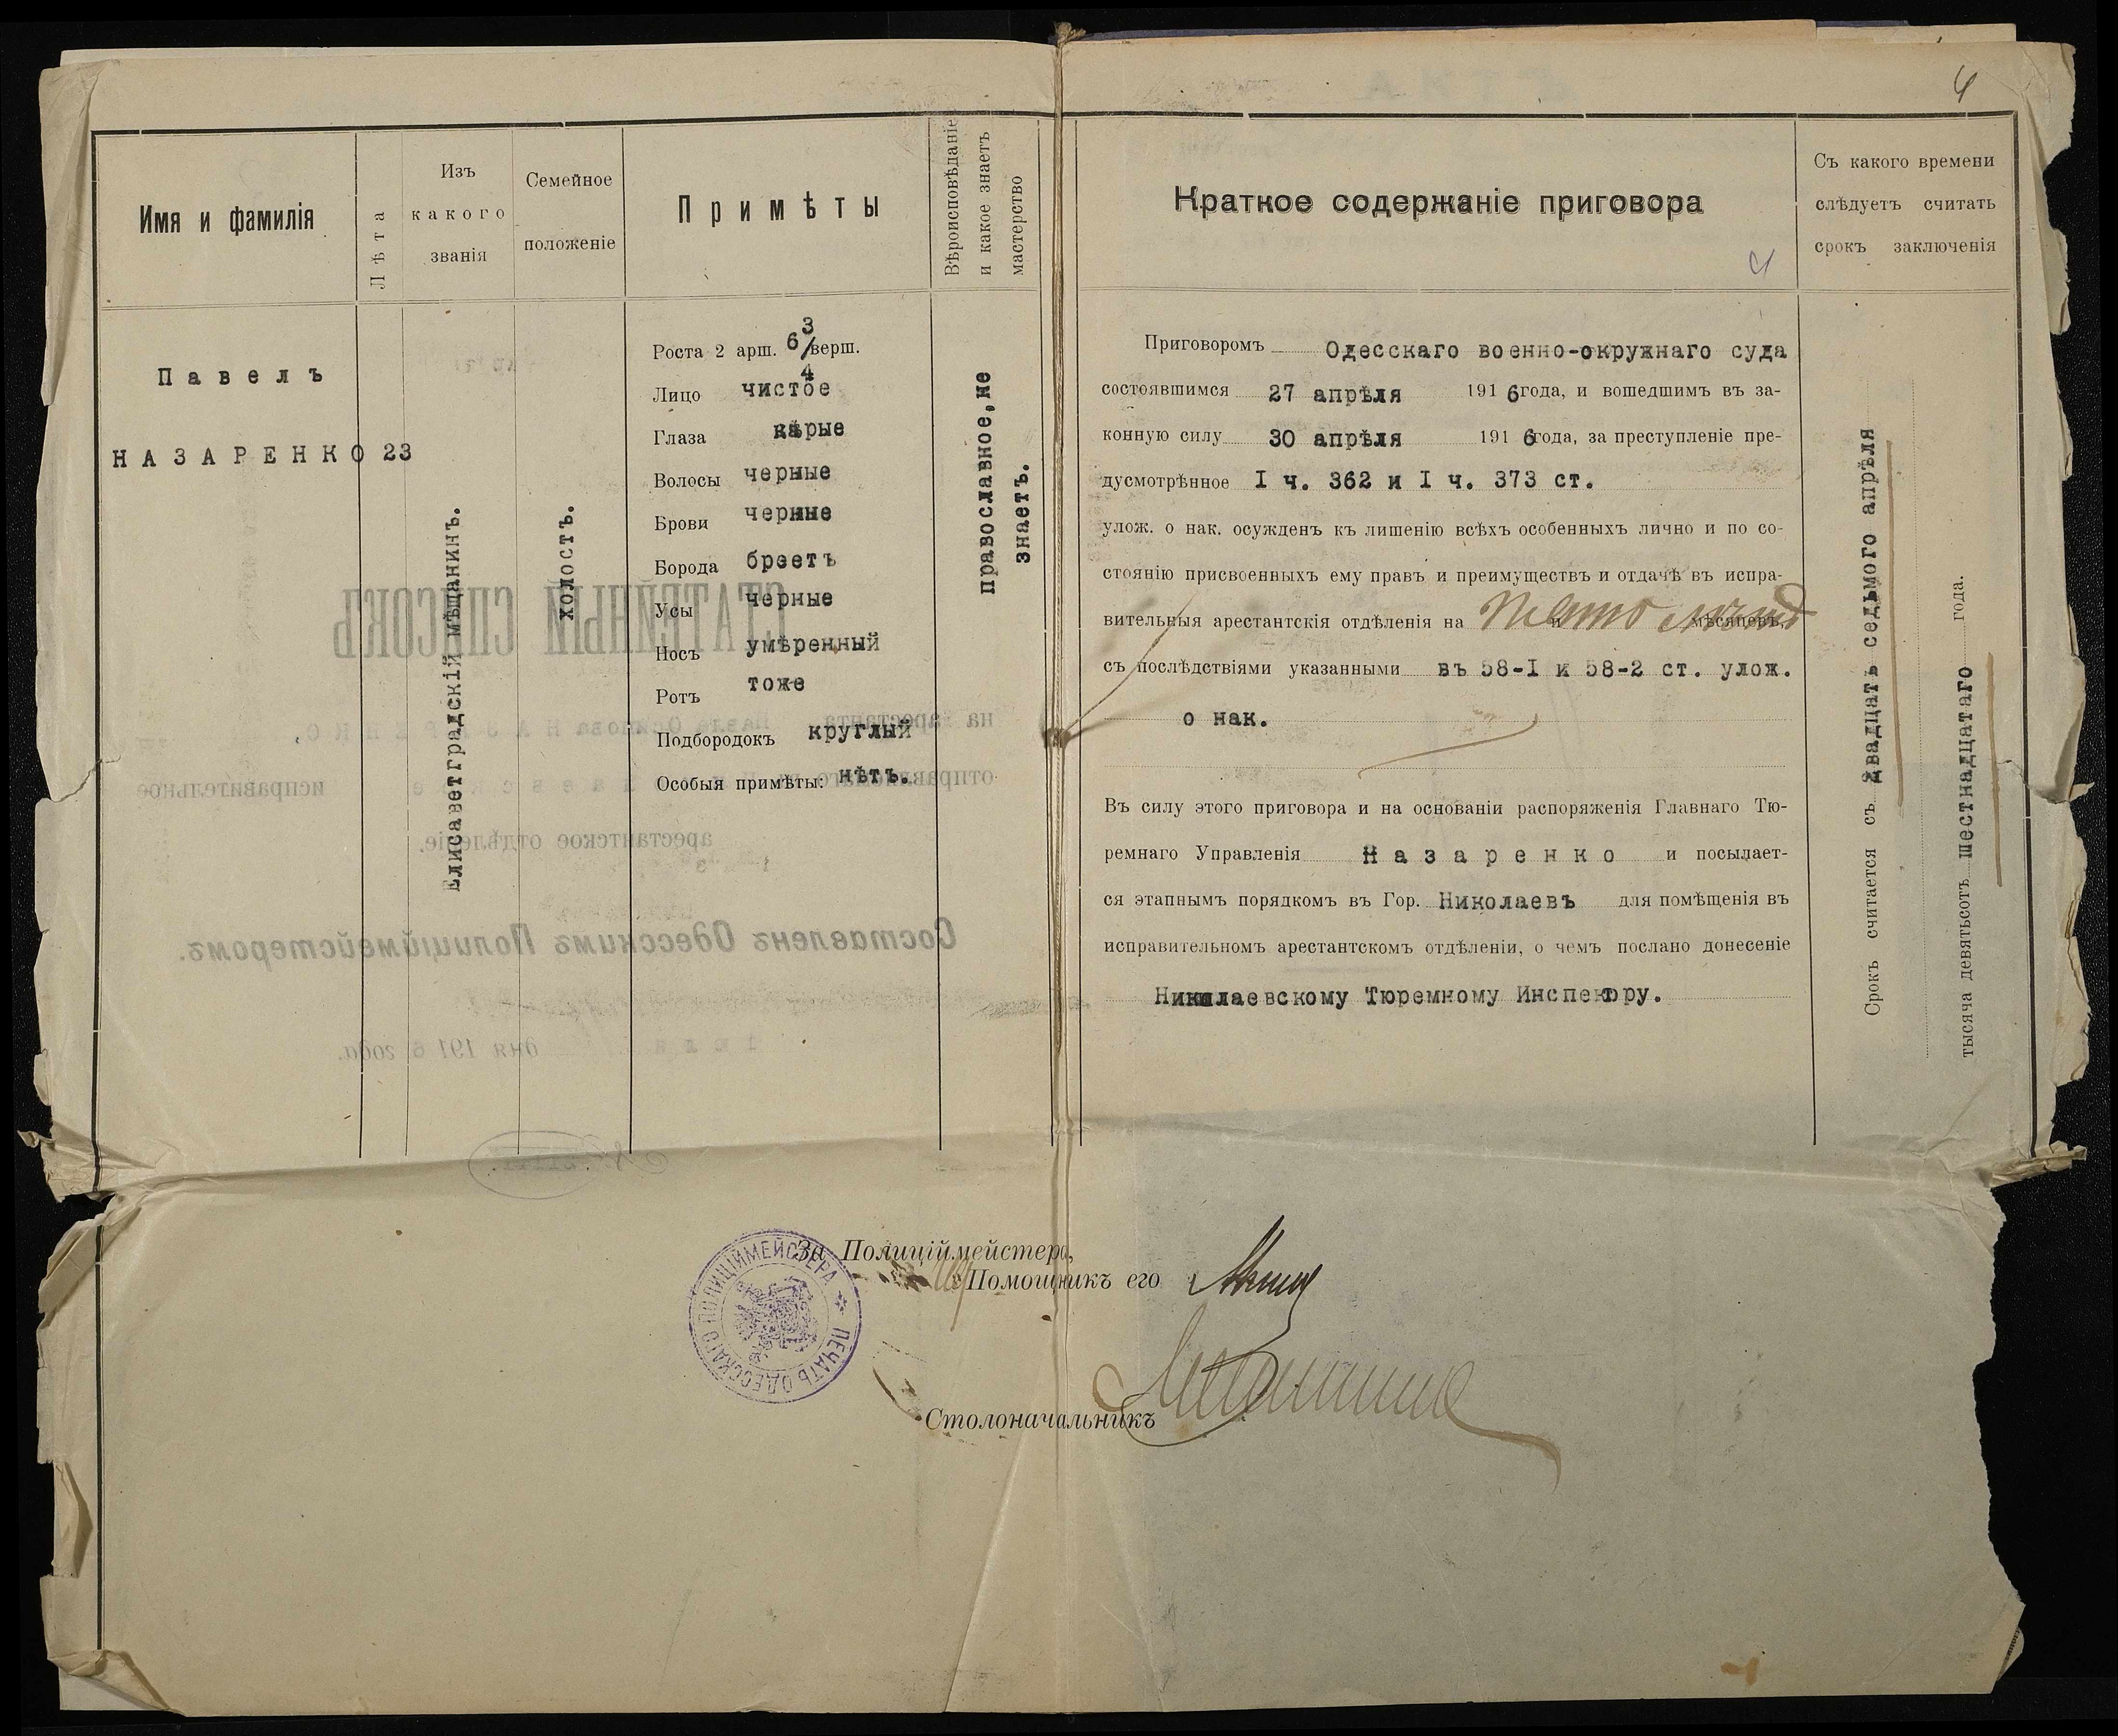 4
Имя и фамилія
Лѣта
Изъ
какого
званія
Семейное
положеніе
Примѣты
Вѣроисповѣданіе
и какое знаетъ
мастерство
Павелъ
НАЗАРЕНКО
23
Елисаветградскій мѣщанинъ.
холостъ.
Роста 2 арш. 6 3/4 верш.
Лицо чистое
Глаза карые
Волосы черные
Брови черные
Борода бреетъ
Усы черные
Носъ умѣренный
Ротъ тоже
Подбородокъ круглый
Особыя примѣты: нѣтъ.
православное, не
знаетъ.
Краткое содержаніе приговора
4
Съ какого времени
слѣдуетъ считать
срокъ заключенія
Приговоромъ Одесскаго военно-окружнаго суда
состоявшимся 27 апрѣля 1916 года, и вошедшимъ въ за-
конную силу 30 апрѣля 1916 года, за преступленіе пре-
дусмотрѣнное I ч. 362 и I ч. 373 ст.
улож. о нак. осужденъ къ лишенію всѣхъ особенныхъ лично и по со-
стоянію присвоенныхъ ему правъ и преимуществъ и отдачѣ въ испра-
вительныя арестантскія отдѣленія на и мѣсяцевъ,
съ послѣдствіями указанными въ 58-I и 58-2 ст. улож.
о нак.
Въ силу этого приговора и на основаніи распоряженія Главнаго Тю-
ремнаго Управленія Назаренко и посылает-
ся этапнымъ порядкомъ въ Гор. Николаевъ для помѣщенія въ
исправительномъ арестантскомъ отдѣленіи, о чемъ послано донесеніе
Николаевскому Тюремному Инспектору.
Срокъ считается съ двадцать седьмого апрѣля
тысяча девятьсотъ шестнадцатаго года.
За Полиціймейстера,
Помощникъ его
Столоначальникъ
ПЕЧАТЬ ОДЕССКАГО ПОЛИЦІЙМЕЙСТЕРА
СТАТЕЙНЫЙ СПИСОКЪ
на арестанта Павла Осипова НАЗАРЕНКО,
отправляемаго въ исправительное
арестантское отдѣленіе.
Составленъ Одесскимъ Полиціймейстеромъ.
дня 1916 года.